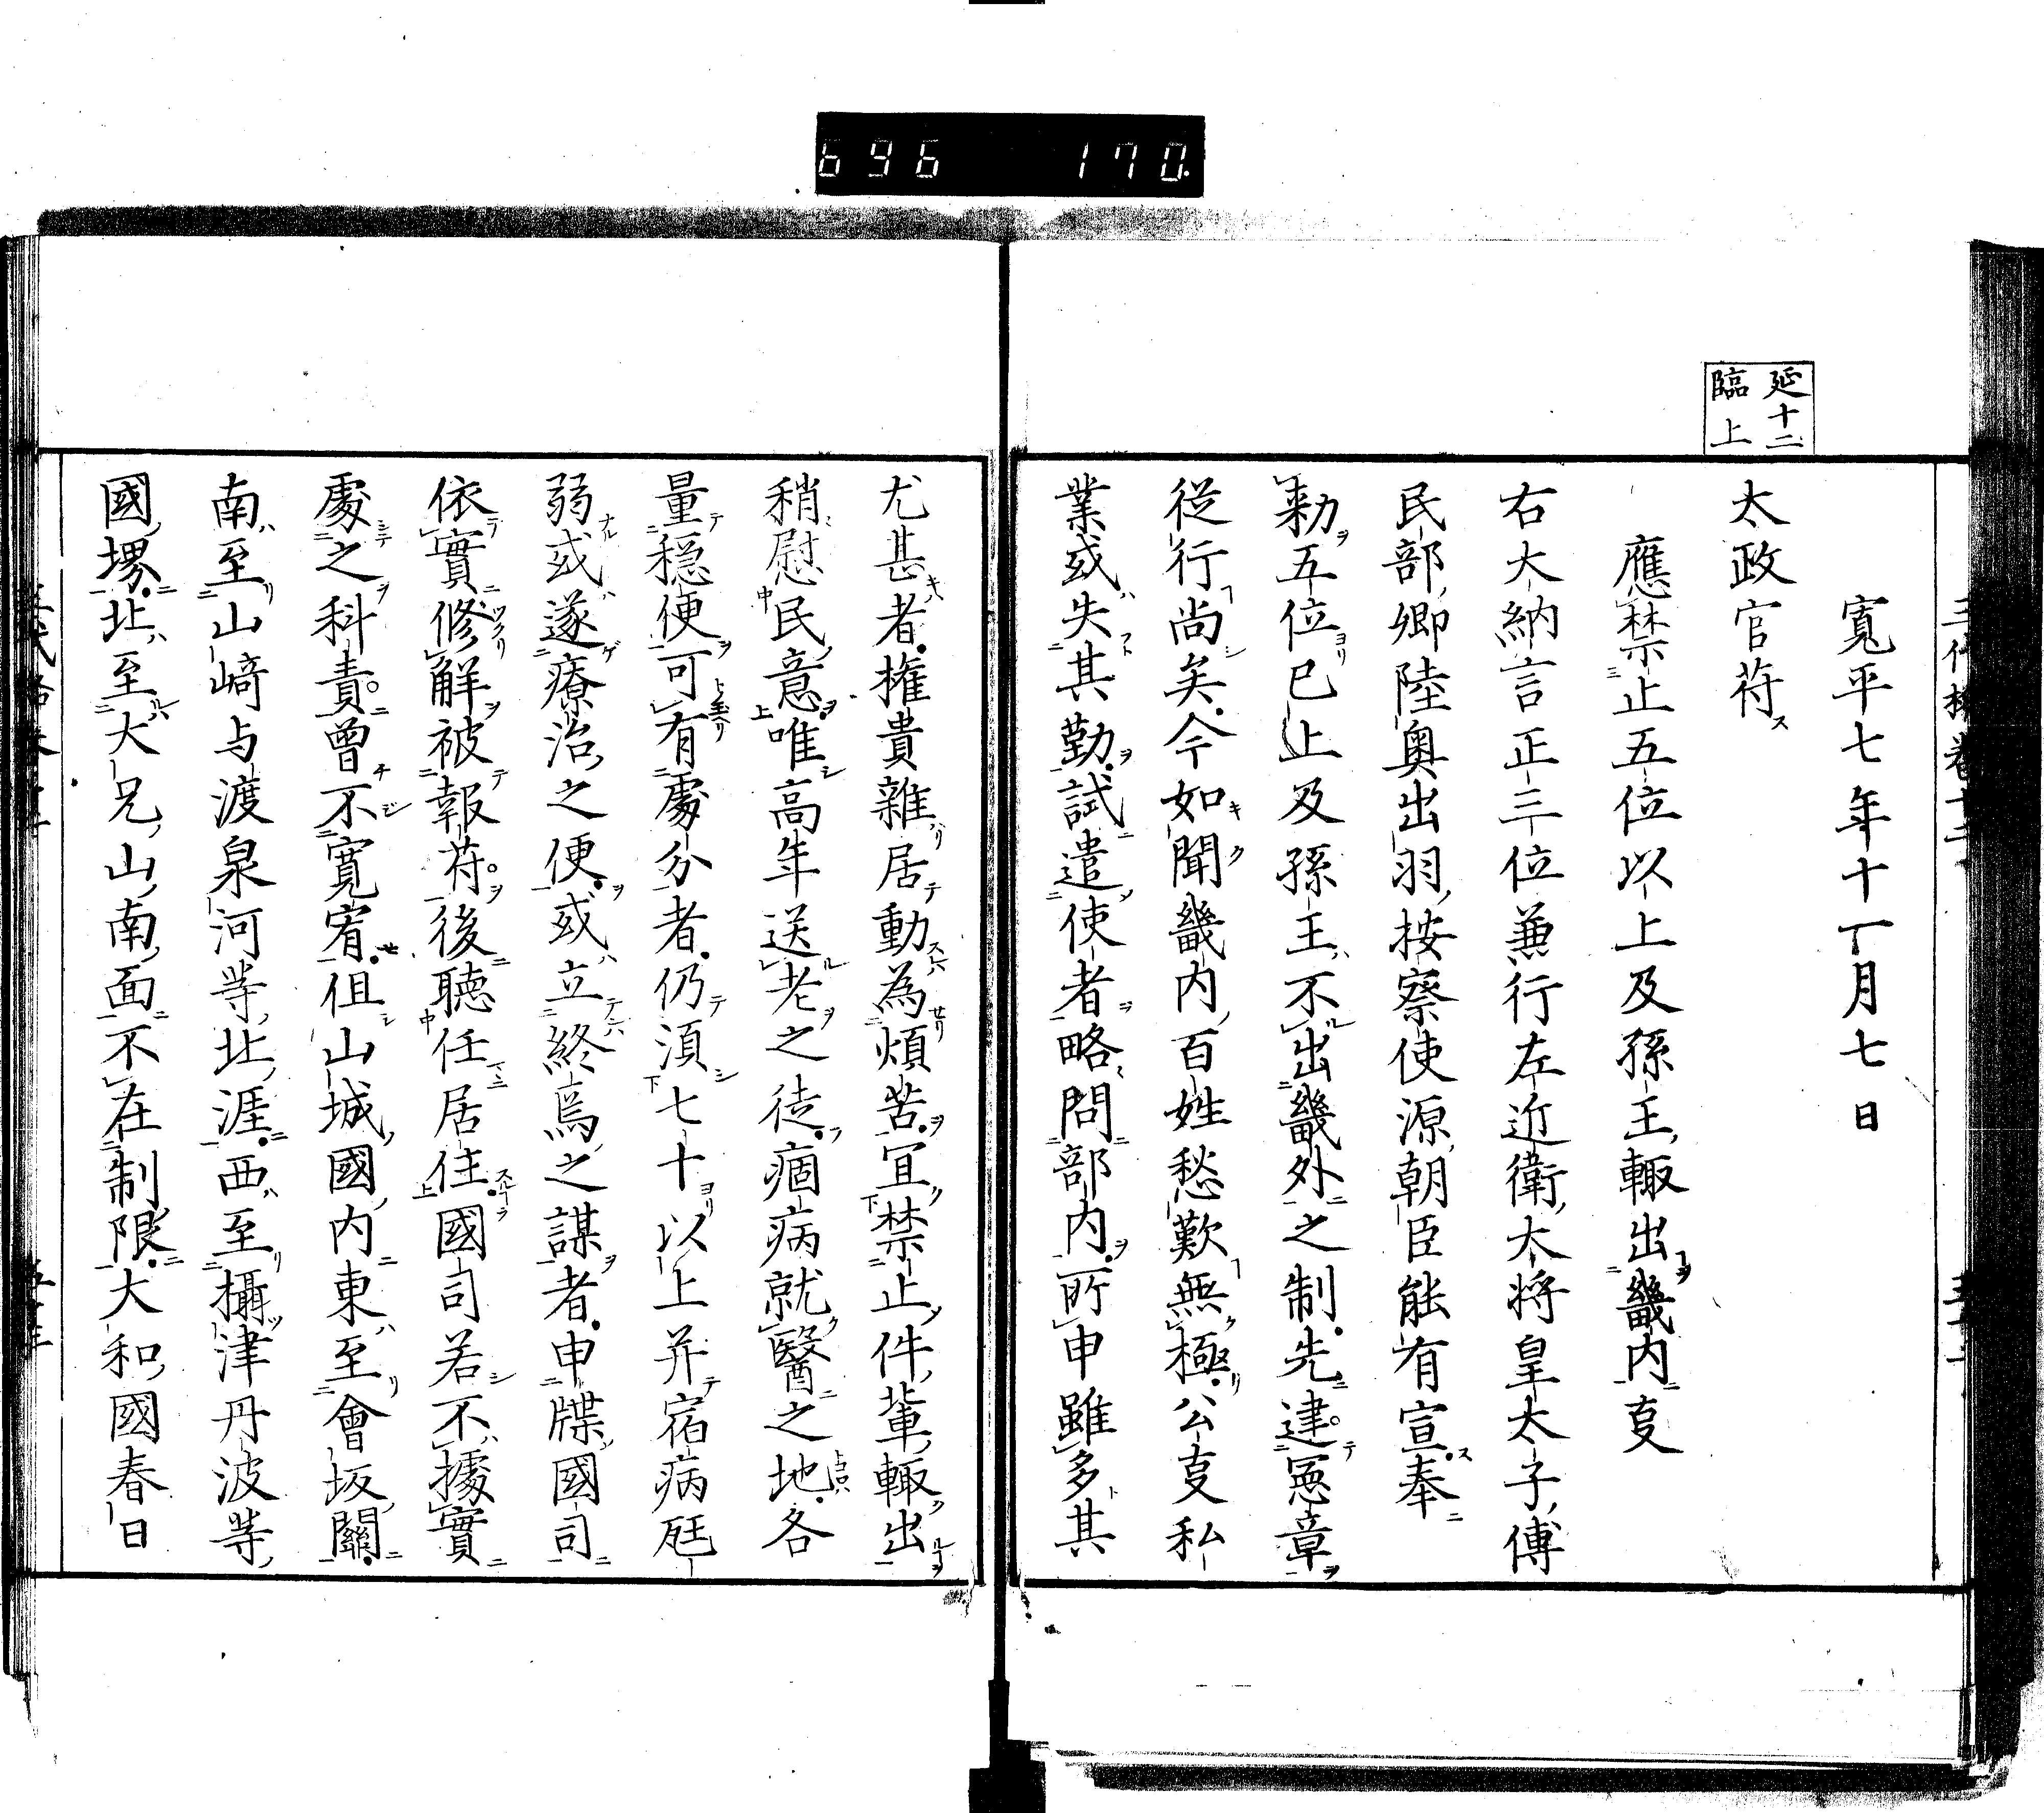 696 170
延十二
臨上
寛平七年十一月七日
太政官苻
應禁止五位以上及孫王輙出畿内叓
右大納言正三位兼行左近衛太将皇太子傅
民部卿陸奥出羽按察使源朝臣能有宣奉
勅五位已上及孫王不出畿外之制先建憲章
従行尚矣今如聞畿内百姓愁歎無極公叓私
業或失其勤試遣使者略問部内所申雖多其
尤甚者権貴雜居動為煩苦宜禁止件輩輙出
稍慰民意唯高年送老之徒痼病就醫之地各
量穏便可有處分者仍須七十以上并宿病尫
弱或遂療治之便或立終焉之謀者申牒國司
依實修解被報苻後聴任居住國司若不據實
處之科責曽不寛宥但山城國内東至會坂關
南至山﨑与渡泉河等北涯西至攝津丹波等
國堺北至大兄山南面不在制限大和國春日